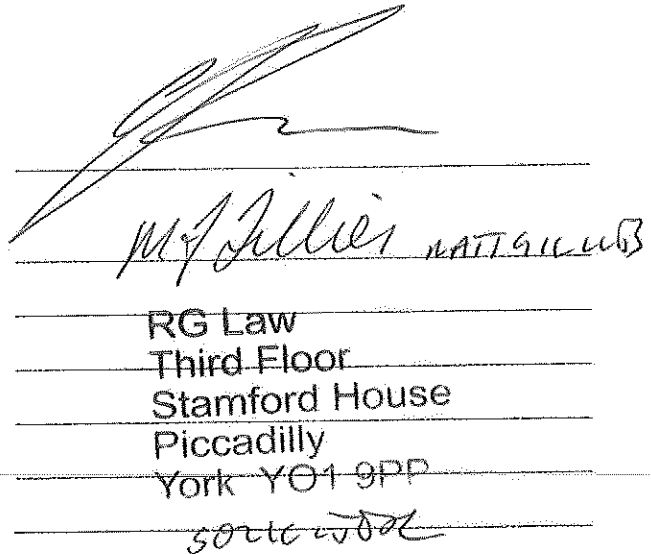 MJ Gillies MATT GILLIES
RG Law
Third Floor
Stamford House
Piccadilly
York YO1 9PP
SOLICITOR